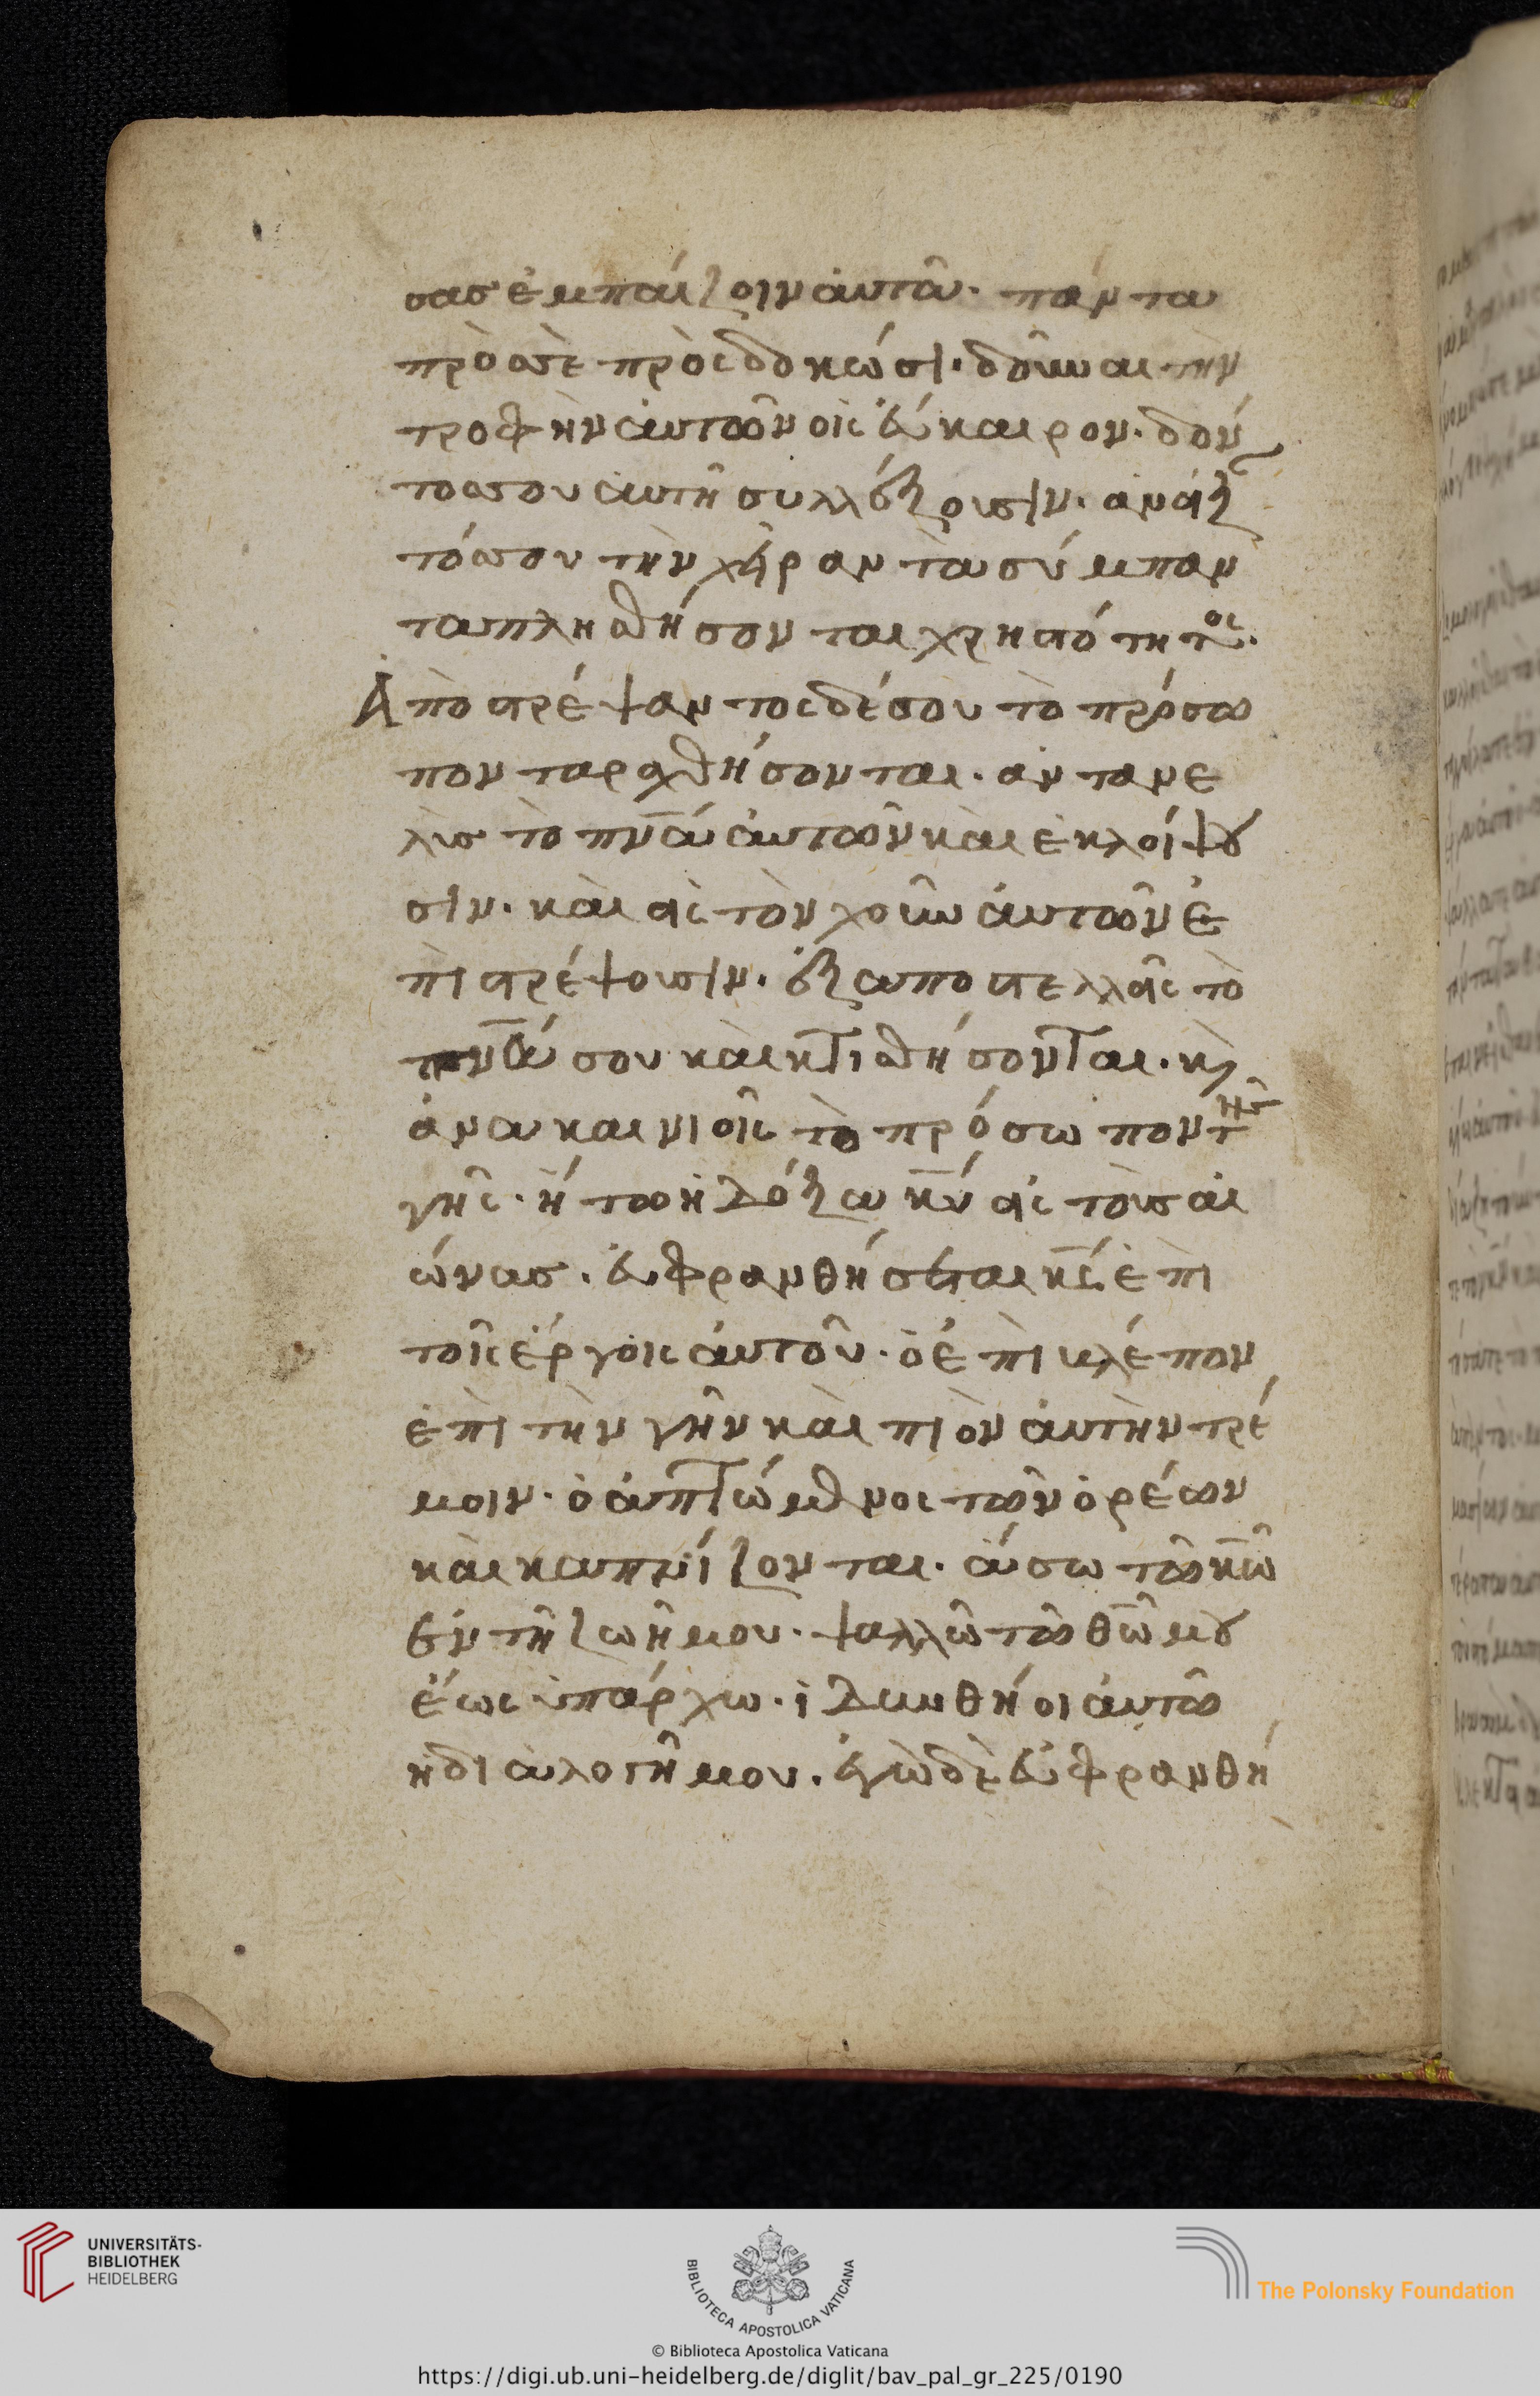 σας ἐμπαίζοιν ἀυτῶ· πάντα
πρὸσσὲ πρὸςδοκῶσι· δοῦναι τὴν
τροφὴν ἀυτῶν οἰς ἔυκαιρον. δόν
τοσσου ἀυτῆ συλλέξουσιν. ἀνοίξ
τόσσου τὴν χεῖραν τὰ σύμπαν
τα πληθήσονται χρηστότητος.
Ἀπὸστρέψαντος δέ σου τὸ πρόσω
πον ταραχθήσονται. ἀντανε
λὶς τὸ πνα ἀυτῶν κὰι ἐκλοίψου
σιν. κὰι εἰς τὸν χοῦν ἀυτῶν ἐ
πιστρέψουσιν. ἐξαποστελλεῖς τὸ
πνα σου κὰι κτισθήσονται. κὰι
ἀνακαινιοῖς τὸ πρόσωπον τῆς
γῆς. ἤτω ἡ δόξα κυ εἰς τοὺς αἰ
ώνας. ἐυφρανθήσεται κς ἐπὶ
τοῖς ἔργοις ἀυτοῦ. ὁ ἐπιβλέπον
ἐπὶ τὴν γῆν κὰι πιὸν ἀυτὴν τρέ
μοιν. ὁ ἁπτώμενος τῶν ὀρέων
κὰι καπνίζονται. ἄσω τῶ κω
ἐν τῆ ζωῆ μου. ψαλλῶ τῶ θω μου
ἕως ὑπάρχω. ἰδυνθήοι ἀυτῶ
ἡ διαλογῆ μου. ἐγὼ δὲ ἐυφρανθή
UNIVERSITÄTS-
BIBLIOTHEK
HEIDELBERG
BIBLIOTECA APOSTOLICA VATICANA
The Polonsky Foundation
© Biblioteca Apostolica Vaticana
https://digi.ub.uni-heidelberg.de/diglit/bav_pal_gr_225/0190